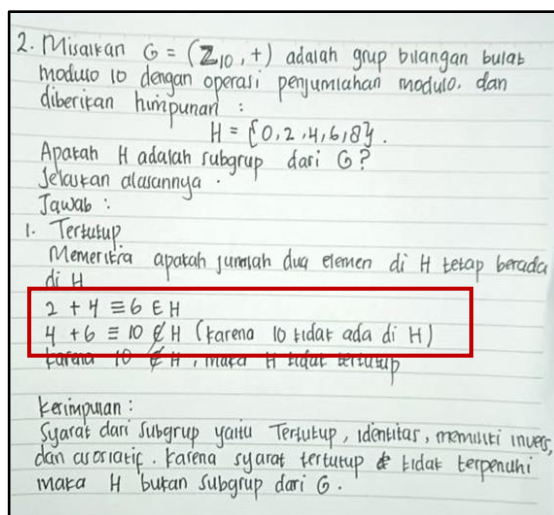 2. Misalkan G = (Z₁₀, +) adalah grup bilangan bulat
modulo 10 dengan operasi penjumlahan modulo. dan
diberikan himpunan :
H = {0, 2, 4, 6, 8}.
Apakah H adalah subgrup dari G?
Jelaskan alasannya.
Jawab :
1. Tertutup
Memeriksa apakah jumlah dua elemen di H tetap berada
di H
2 + 4 ≡ 6 ∈ H
4 + 6 ≡ 10 ∉ H (karena 10 tidak ada di H)
karena 10 ∉ H, maka H tidak tertutup
Kesimpulan :
Syarat dari subgrup yaitu Tertutup, identitas, memiliki invers,
dan asosiatif. Karena syarat tertutup tidak terpenuhi
maka H bukan subgrup dari G.